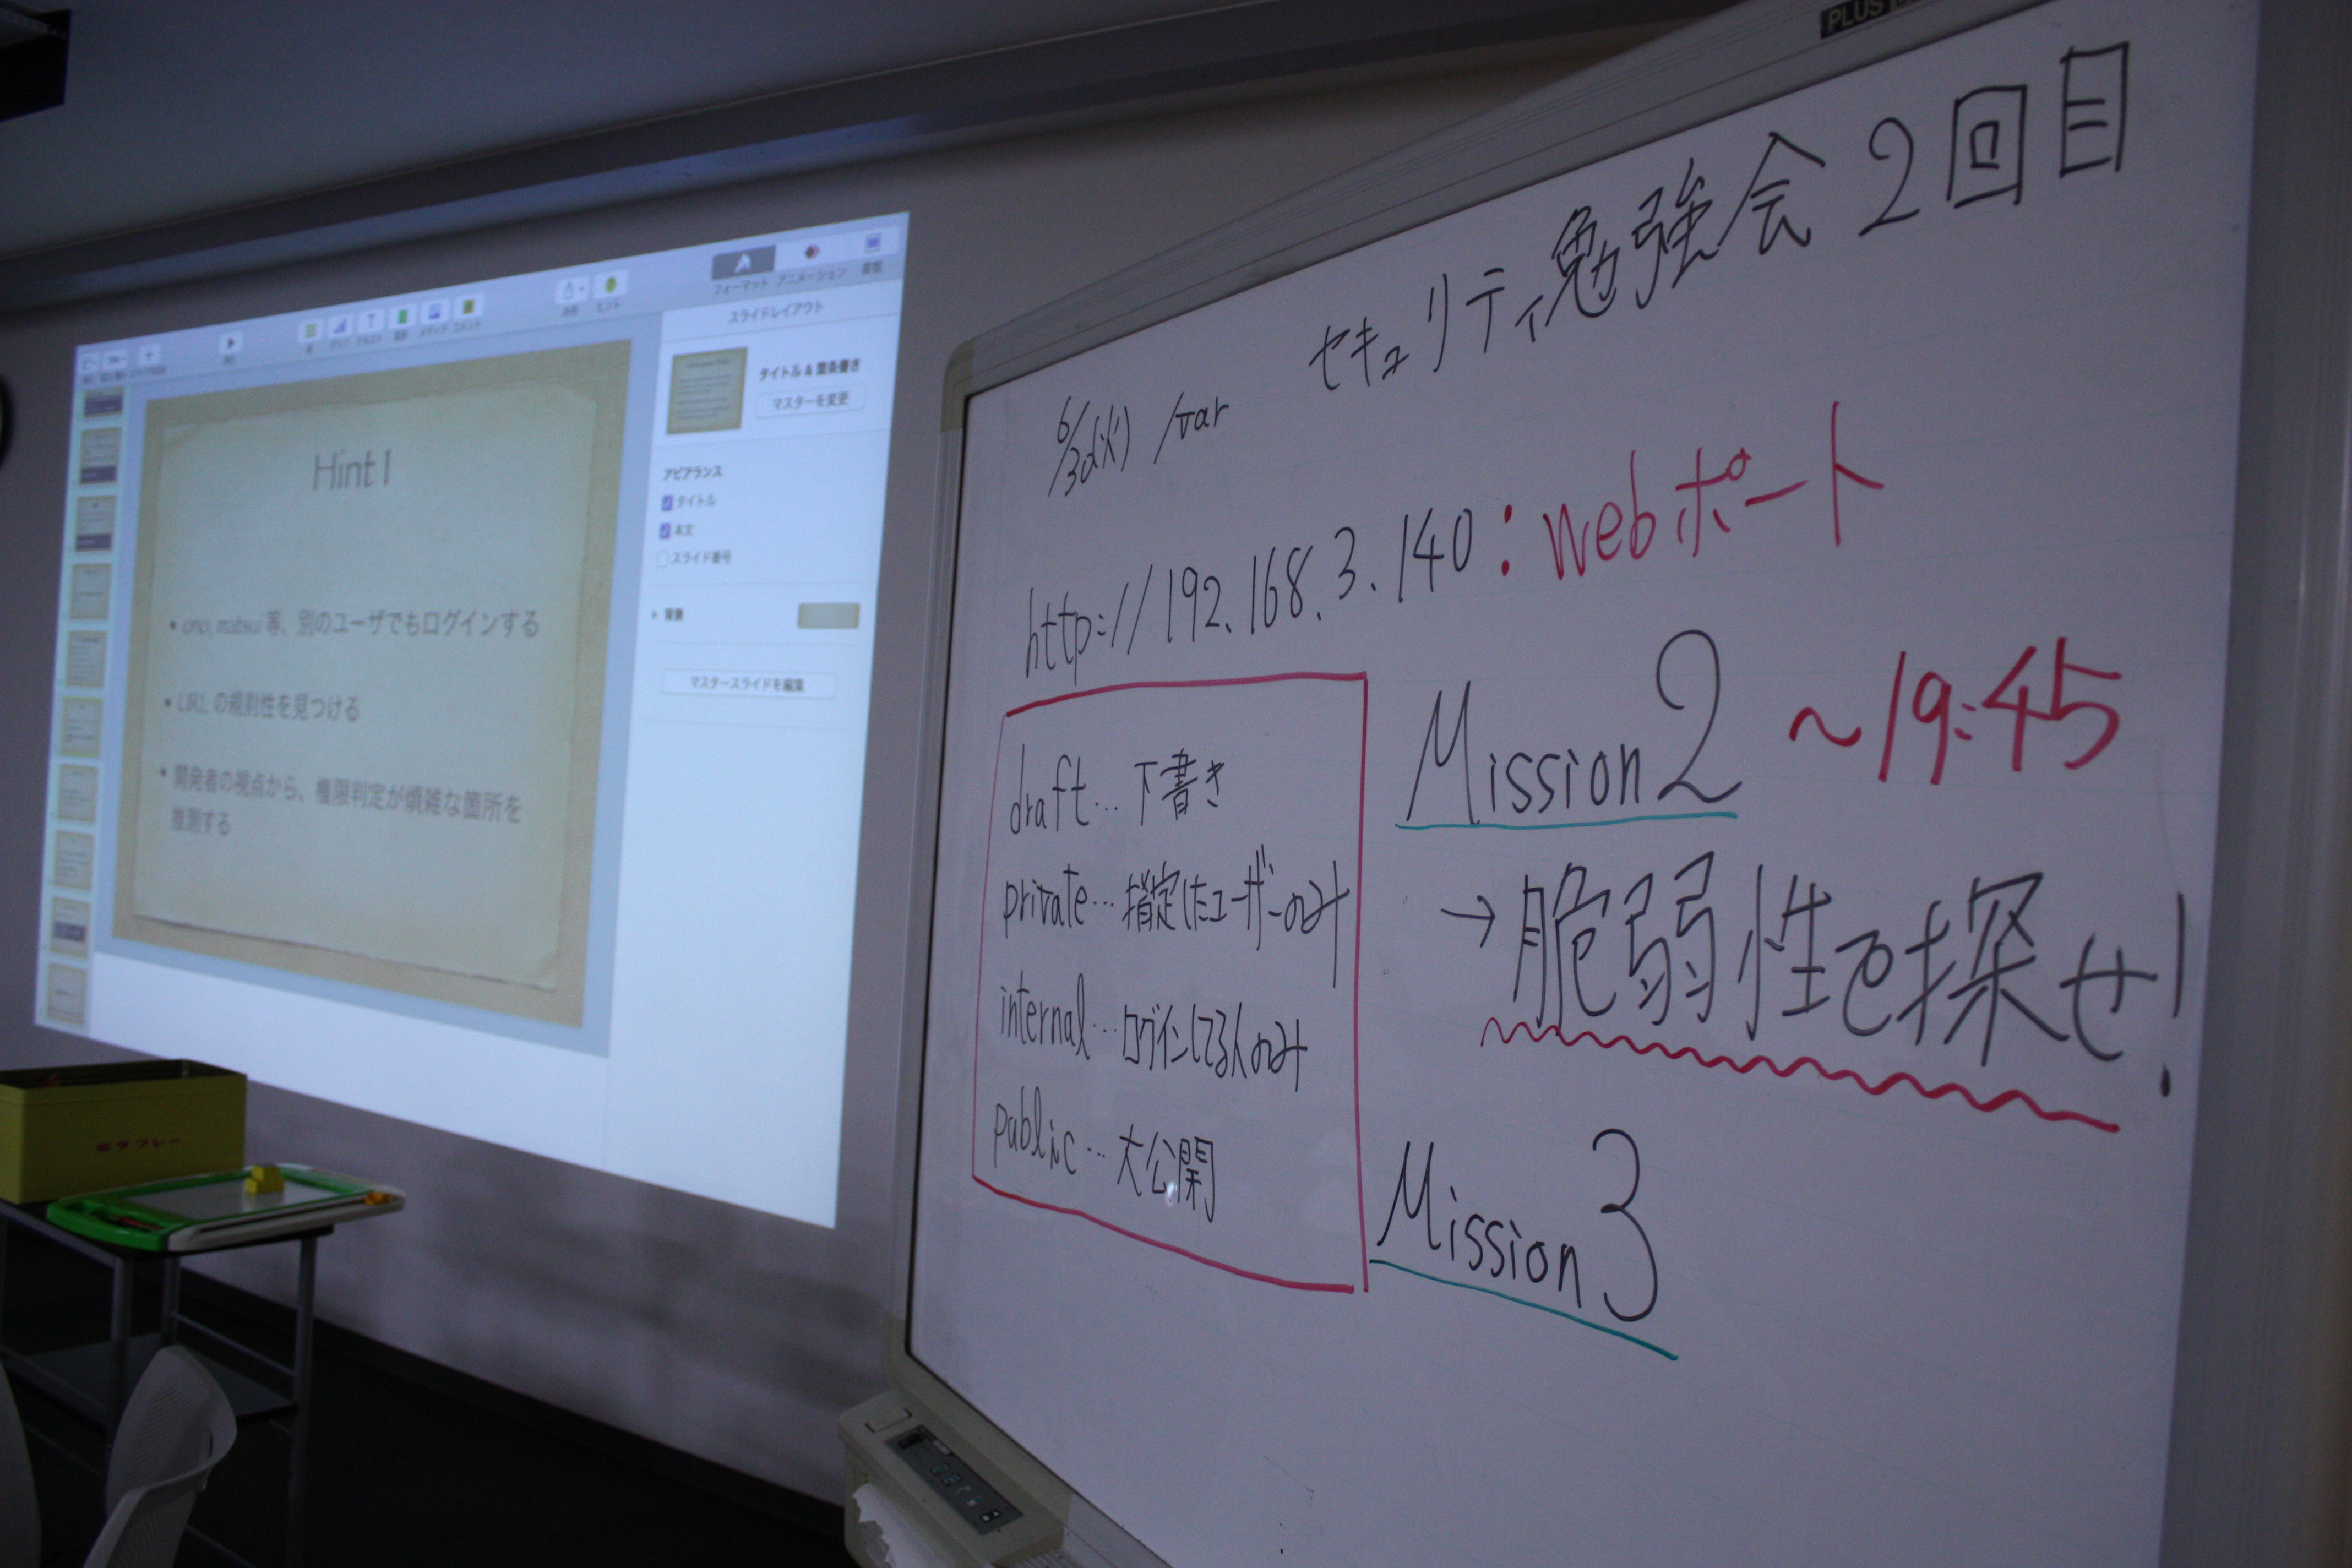 フォーマット アニメーション 書類
スライドレイアウト
タイトル & 箇条書き
マスターを変更
アピアランス
タイトル
本文
スライド番号
背景
マスタースライドを編集
Hint 1
• ono, matsui 等、別のユーザでもログインする
• URL の規則性を見つける
• 開発者の視点から、権限判定が煩雑な箇所を
推測する
PLUS
セキュリティ勉強会 2回目
/var
http://192.168.3.140:webポート
draft… 下書き
private… 指定したユーザーのみ
internal… ログインしてる人のみ
public… 大公開
Mission2 ~19:45
→脆弱性を探せ!
Mission3